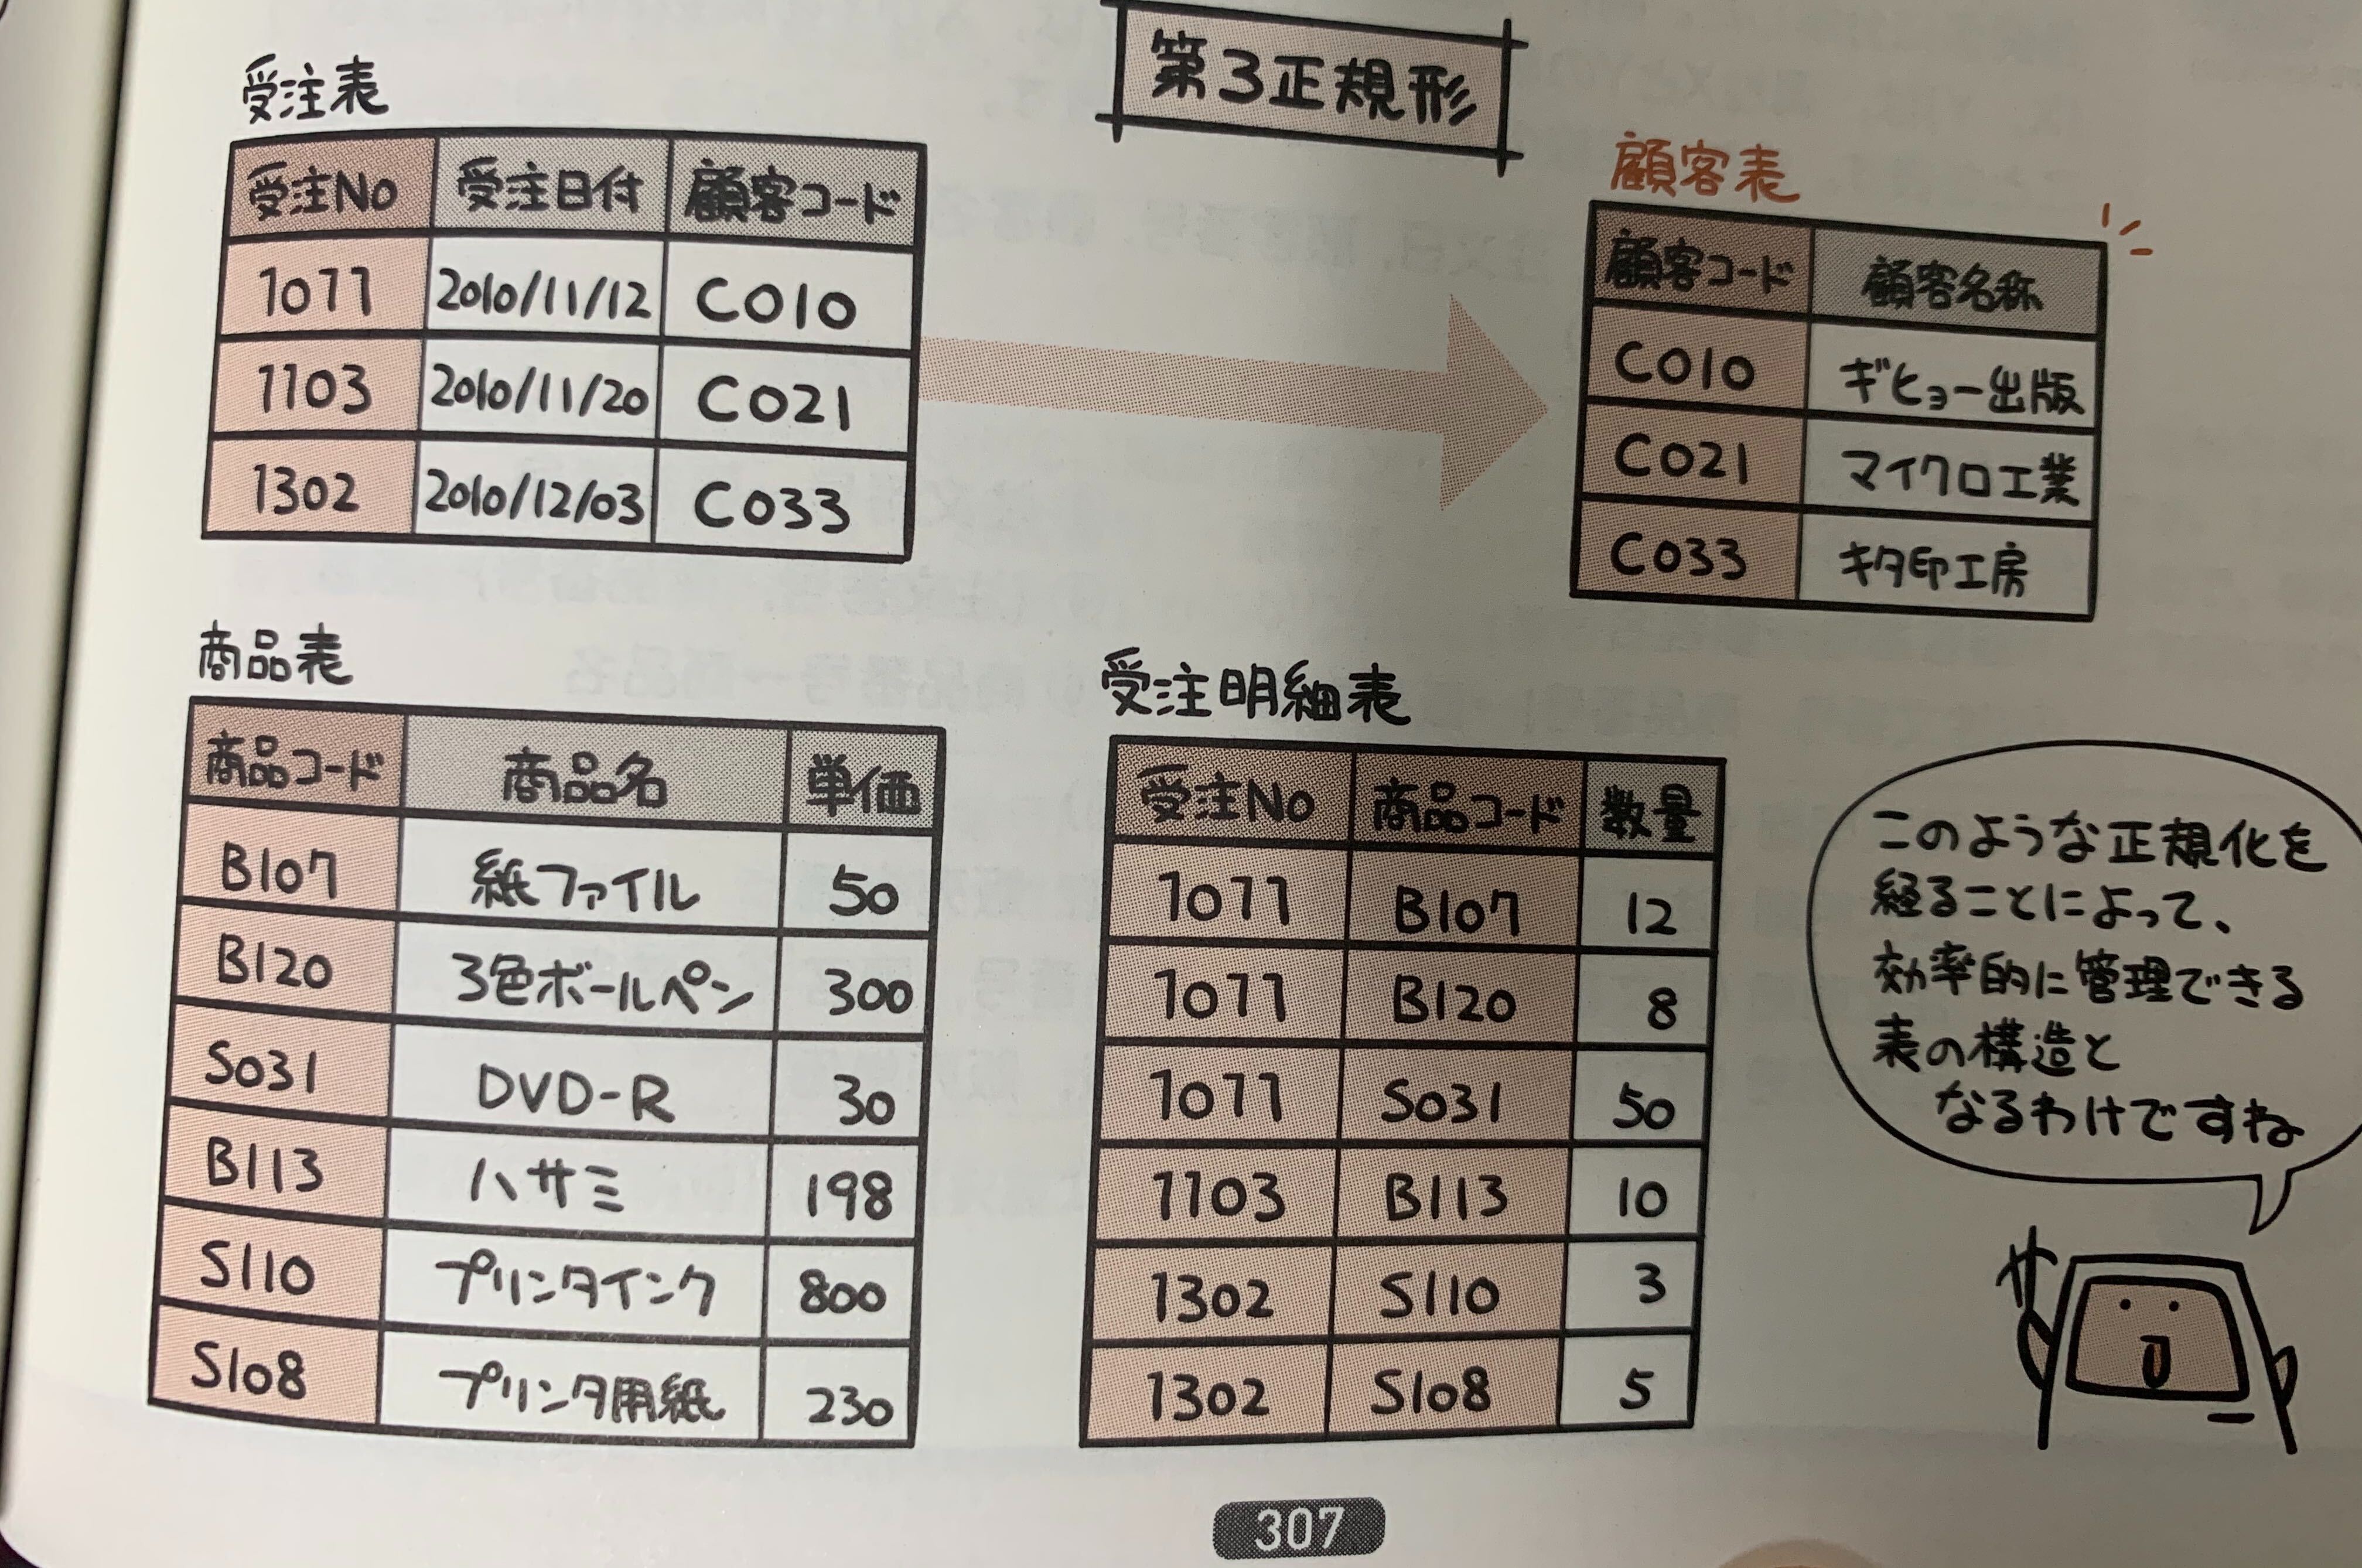 第3正規形
受注表
受注No 受注日付 顧客コード
1077 2010/11/12 C010
1103 2010/11/20 C021
1302 2010/12/03 C033
顧客表
顧客コード 顧客名称
C010 ギヒョー出版
C021 マイクロ工業
C033 キタ印工房
商品表
商品コード 商品名 単価
B107 紙ファイル 50
B120 3色ボールペン 300
S031 DVD-R 30
B113 ハサミ 198
S110 プリンタインク 800
S108 プリンタ用紙 230
受注明細表
受注No 商品コード 数量
1077 B107 12
1077 B120 8
1077 S031 50
1103 B113 10
1302 S110 3
1302 S108 5
このような正規化を
経ることによって、
効率的に管理できる
表の構造と
なるわけですね
307